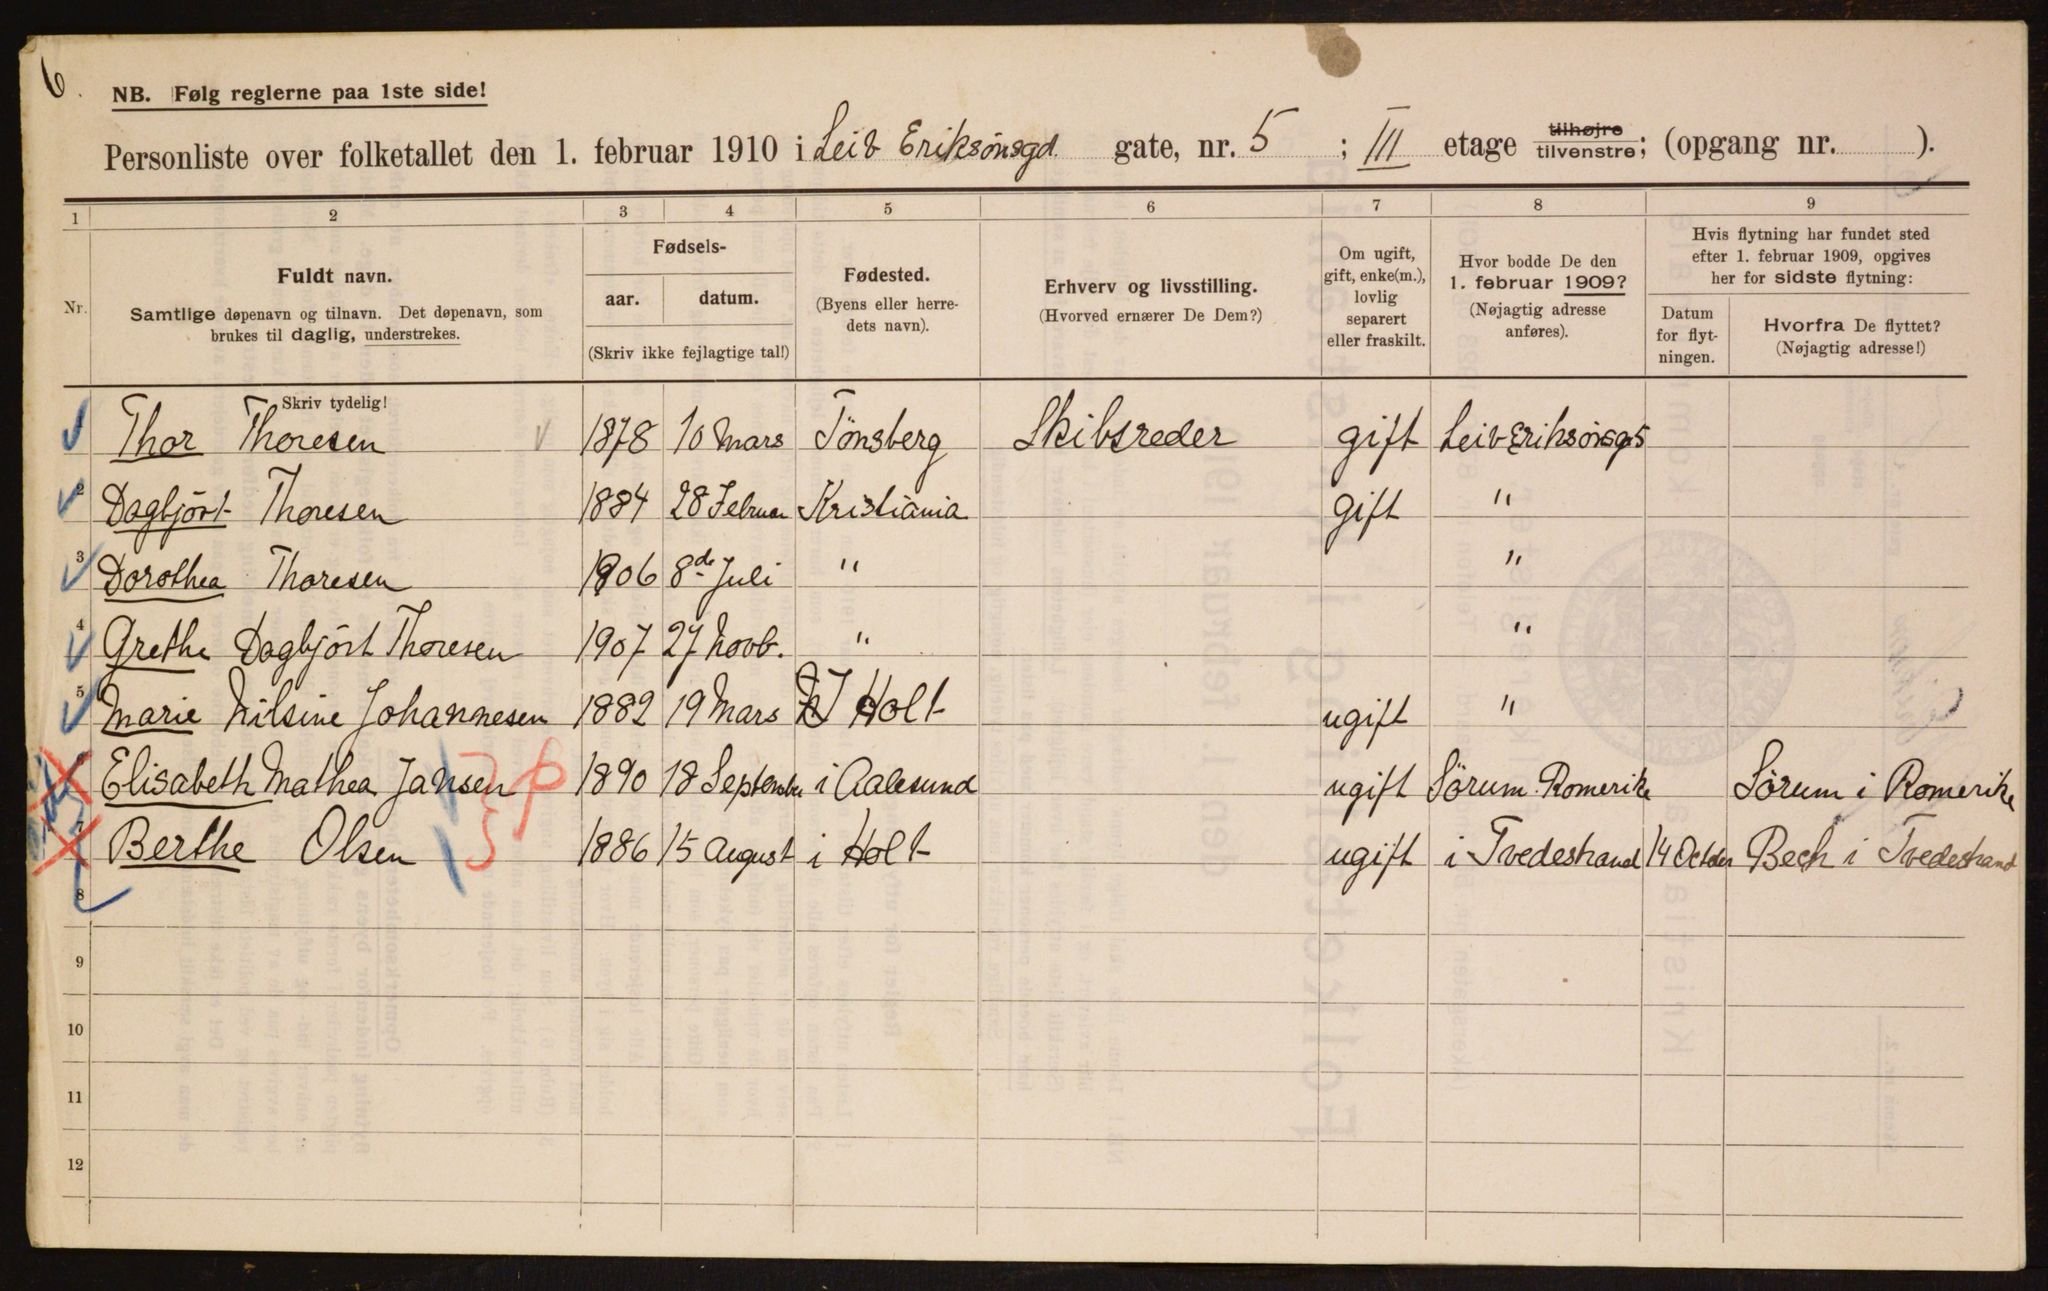 6
NB. Følg reglerne paa 1ste side!
Personliste over folketallet den 1. februar 1910 i Leiv Eriksønsgd. gate, nr. 5 ; III etage tilhøjre tilvenstre; (opgang nr. ).
1 2 3 4 5 6 7 8 9
Nr.
Fuldt navn.
Samtlige døpenavn og tilnavn. Det døpenavn, som
brukes til daglig, understrekes.
Fødsels-
aar. datum.
(Skriv ikke fejlagtige tal!)
Fødested.
(Byens eller herre-
dets navn).
Erhverv og livsstilling.
(Hvorved ernærer De Dem?)
Om ugift,
gift, enke(m.),
lovlig
separert
eller fraskilt.
Hvor bodde De den
1. februar 1909?
(Nøjagtig adresse
anføres).
Hvis flytning har fundet sted
efter 1. februar 1909, opgives
her for sidste flytning:
Datum
for flyt-
ningen.
Hvorfra De flyttet?
(Nøjagtig adresse!)
Skriv tydelig!
Thor Thoresen 1878 10 Mars Tönsberg Skibsreder gift Leiv Eriksönsg 5
2 Dagbjört Thoresen 1884 28 Februar Kristiania gift "
3 Dorothea Thoresen 1906 8de Juli " "
4 Grethe Dagbjört Thoresen 1907 27 Novb. " "
5 Marie Nilsine Johannesen 1882 19 Mars Holt ugift "
Elisabeth Mathea Jansen 1890 18 September i Aalesund ugift Sörum Romerike Sörum i Romerike
7 Berthe Olsen 1886 15 August i Holt ugift i Tvedestrand 14 October Bech i Tvedestrand
8
9
10
11
12